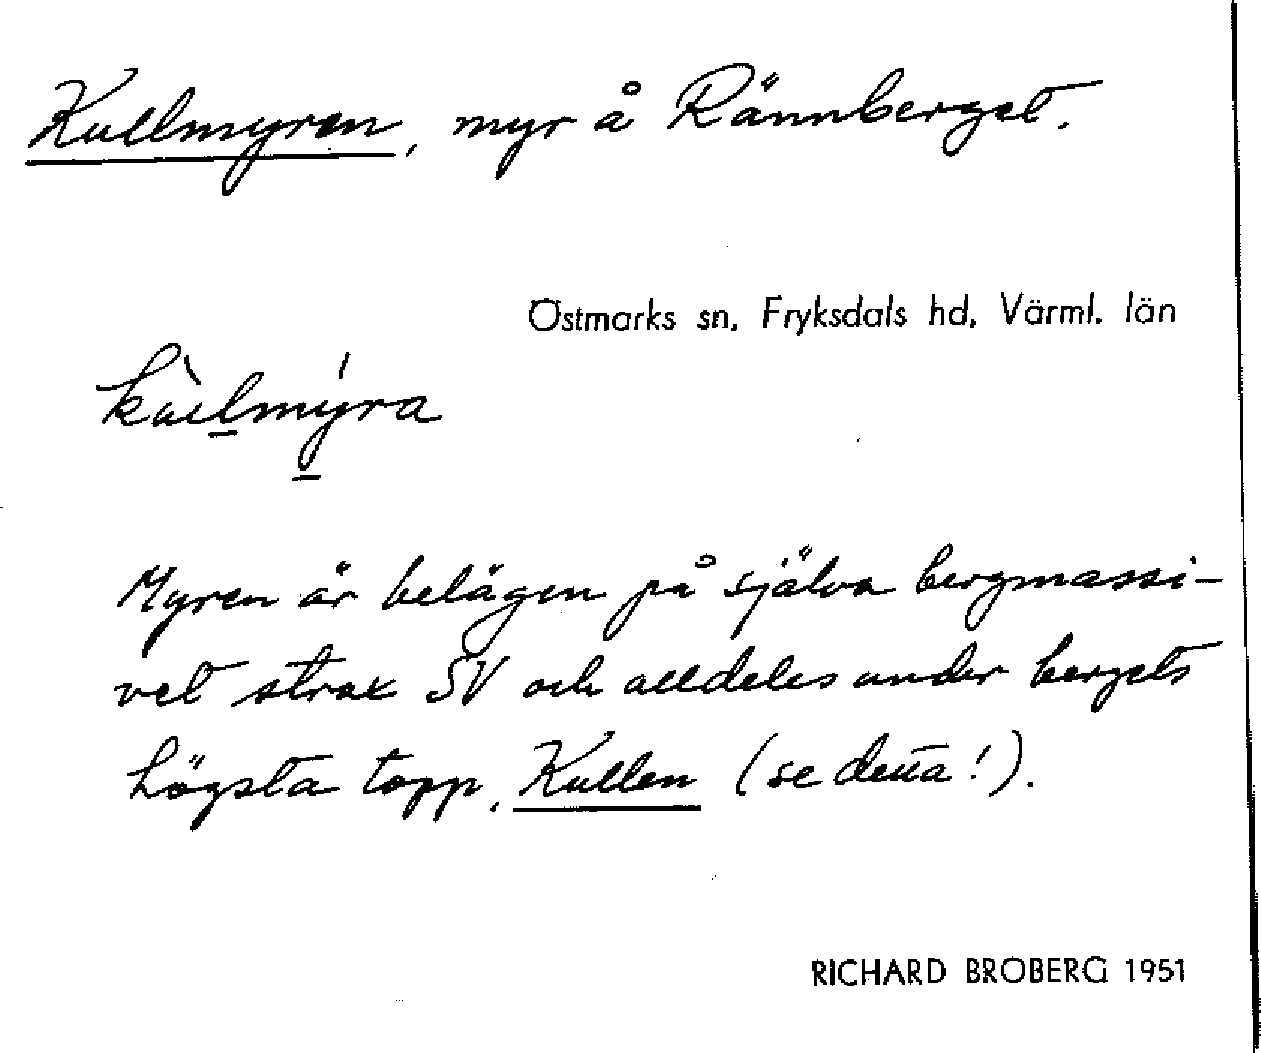 Kullmyren, myr å Rännberget.
Östmarks sn, Fryksdals hd, Värml. län
kùlmýra
Myren är belägen på själva bergmassi-
vet strax SV och alldeles under bergets
högsta topp, Kullen (se detta!).
RICHARD BROBERG 1951